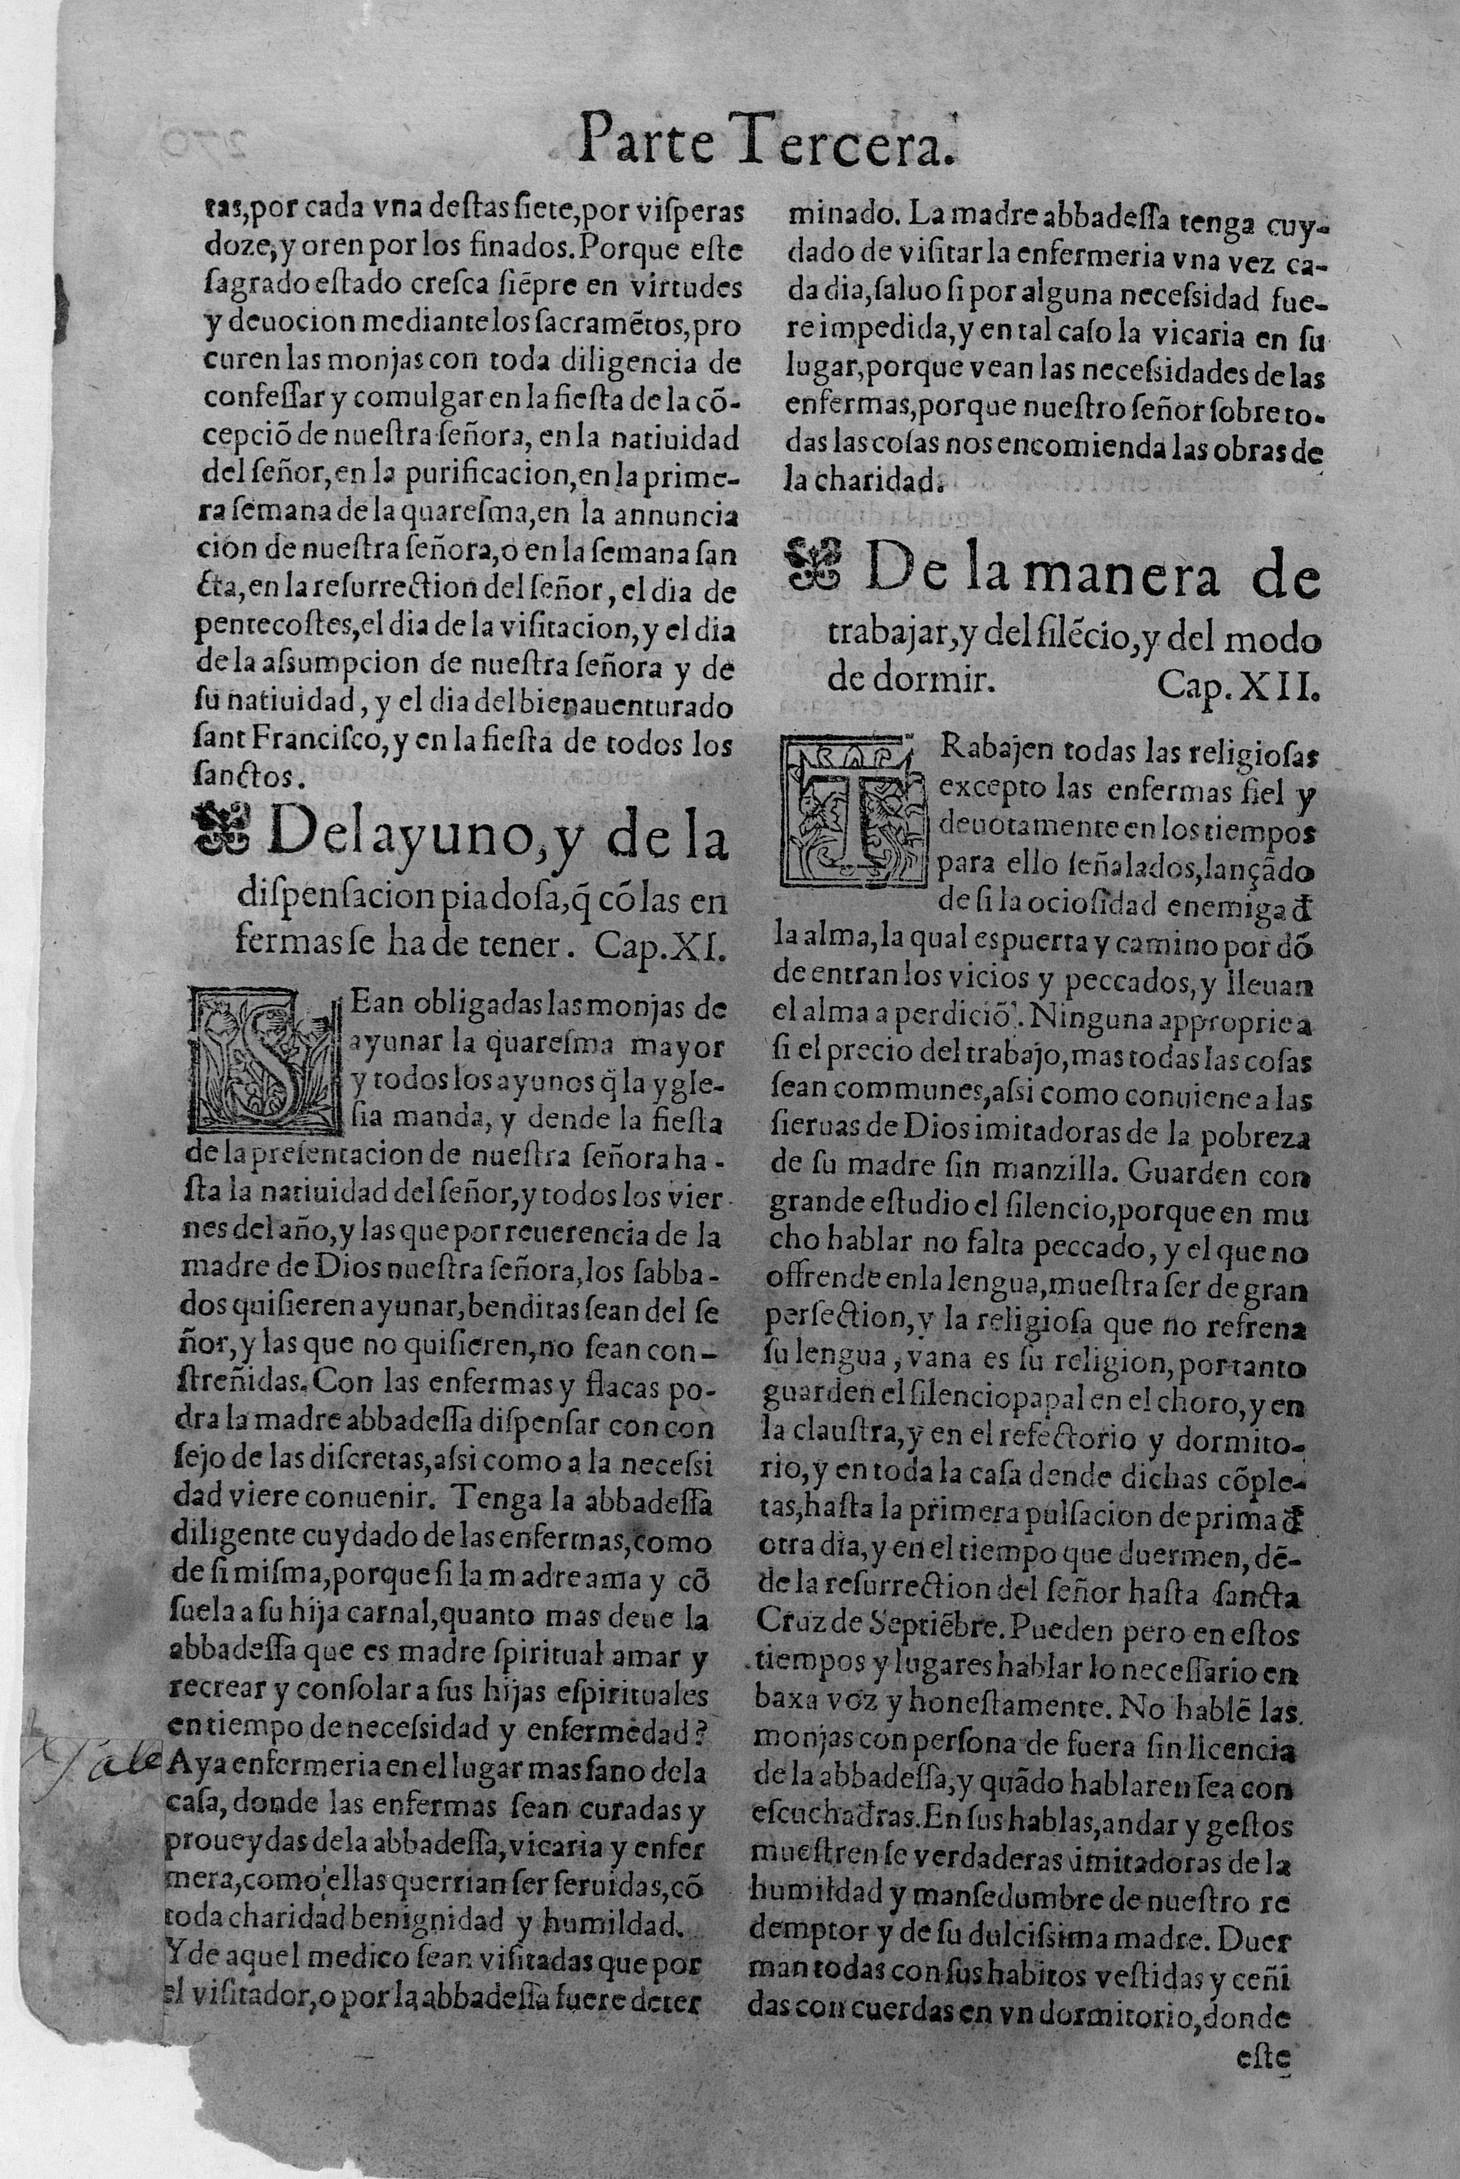 Parte Tercera.
tas, por cada vna destas siete, por visperas
doze, y oren por los finados. Porque este
sagrado estado cresca siẽpre en virtudes
y deuocion mediante los sacramẽtos, pro
curen las monjas con toda diligencia de
confessar y comulgar en la fiesta de la cõ-
cepciõ de nuestra señora, en la natiuidad
del señor, en la purificacion, en la prime-
ra semana de la quaresma, en la annuncia
cion de nuestra señora, o en la semana san
cta, en la resurrection del señor, el dia de
pentecostes, el dia de la visitacion, y el dia
de la assumpcion de nuestra señora y de
su natiuidad, y el dia del bienauenturado
sant Francisco, y en la fiesta de todos los
sanctos.
Del ayuno, y de la
dispensacion piadosa, q̃ cõ las en
fermas se ha de tener. Cap. XI.
SEan obligadas las monjas de
ayunar la quaresma mayor
y todos los ayunos q̃ la ygle-
sia manda, y dende la fiesta
de la presentacion de nuestra señora ha-
sta la natiuidad del señor, y todos los vier
nes del año, y las que por reuerencia de la
madre de Dios nuestra señora, los sabba-
dos quisieren ayunar, benditas sean del se
ñor, y las que no quisieren, no sean con-
streñidas. Con las enfermas y flacas po-
dra la madre abbadessa dispensar con con
sejo de las discretas, assi como a la necessi
dad viere conuenir. Tenga la abbadessa
diligente cuydado de las enfermas, como
de si misma, porque si la madre ama y cõ
suela a su hija carnal, quanto mas deue la
abbadessa que es madre spiritual amar y
recrear y consolar a sus hijas espirituales
en tiempo de necessidad y enfermedad?
Aya enfermeria en el lugar mas sano dela
casa, donde las enfermas sean curadas y
proueydas dela abbadessa, vicaria y enfer
mera, como ellas querrian ser seruidas, cõ
toda charidad benignidad y humildad.
Y de aquel medico sean visitadas que por
el visitador, o por la abbadessa fuere deter
minado. La madre abbadessa tenga cuy-
dado de visitar la enfermeria vna vez ca-
da dia, saluo si por alguna necessidad fue-
re impedida, y en tal caso la vicaria en su
lugar, porque vean las necessidades de las
enfermas, porque nuestro señor sobre to-
das las cosas nos encomienda las obras de
la charidad.
De la manera de
trabajar, y del silẽcio, y del modo
de dormir. Cap. XII.
TRabajen todas las religiosas
excepto las enfermas fiel y
deuotamente en los tiempos
para ello señalados, lançãdo
de si la ociosidad enemiga đ
la alma, la qual es puerta y camino por dõ
de entran los vicios y peccados, y lleuan
el alma a perdiciõ. Ninguna approprie a
si el precio del trabajo, mas todas las cosas
sean communes, assi como conuiene a las
sieruas de Dios imitadoras de la pobreza
de su madre sin manzilla. Guarden con
grande estudio el silencio, porque en mu
cho hablar no falta peccado, y el que no
offende en la lengua, muestra ser de gran
perfection, y la religiosa que no refrena
su lengua, vana es su religion, por tanto
guarden el silencio papal en el choro, y en
la claustra, y en el refectorio y dormito-
rio, y en toda la casa dende dichas cõple-
tas, hasta la primera pulsacion de prima đ
otra dia, y en el tiempo que duermen, dẽ-
de la resurrection del señor hasta sancta
Cruz de Septiẽbre. Pueden pero en estos
tiempos y lugares hablar lo necessario en
baxa voz y honestamente. No hablẽ las
monjas con persona de fuera sin licencia
de la abbadessa, y quãdo hablaren sea con
escuchadras. En sus hablas, andar y gestos
muestrense verdaderas imitadoras de la
humildad y mansedumbre de nuestro re
demptor y de su dulcissima madre. Duer
man todas con sus habitos vestidas y ceñi
das con cuerdas en vn dormitorio, donde
este